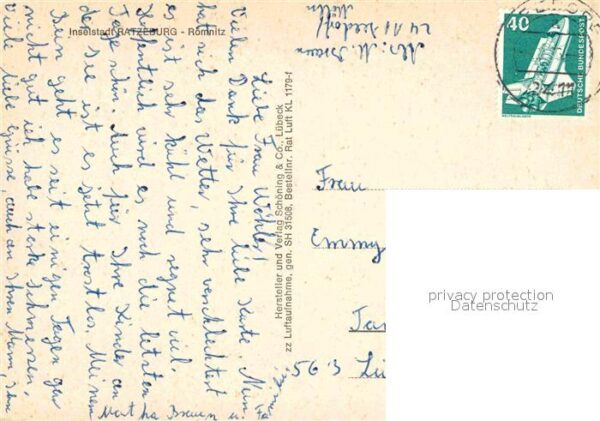 Inselstadt RATZEBURG - Römnitz
Liebe Frau Wöhler!
Vielen Dank für Ihre liebe Karte. Nun
hat sich das Wetter sehr verschlechtert
es ist sehr kühl und regnet viel.
Hoffentlich wird es noch die letzten
Tage schön. Auch für Ihre Kinder an
der See ist es jetzt trostlos. Meinem
Bein geht es seit einigen Tagen gar
nicht gut ich habe starke Schmerzen.
Viele liebe Grüsse, auch an Ihren Mann, Ihre
Martha Braun u.
Hersteller und Verlag Schöning & Co., Lübeck
zz Luftaufnahme, gen. SH 31508, Bestellnr. Rat Luft KL 1179-f
Abs: M. Braun
2411 Seedorf
Mölln
40
DEUTSCHE BUNDESPOST
Frau
Emmy
563
privacy protection
Datenschutz